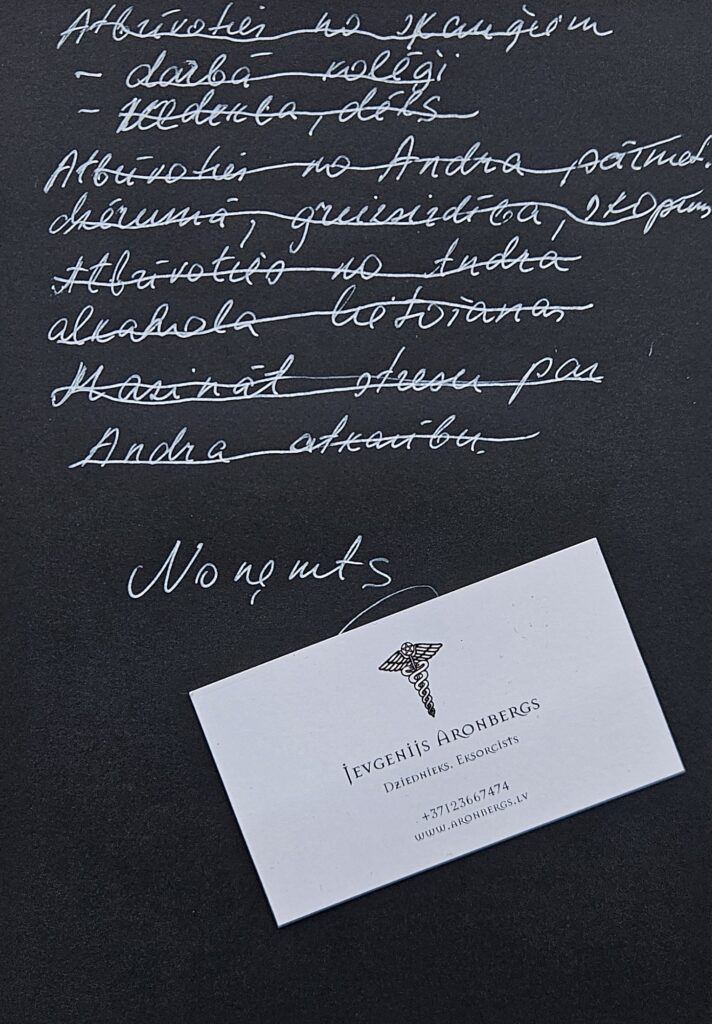 Atbrīvoties no skauģiem
- darbā kolēģi
- vedekla, dēls
Atbrīvoties no Andra pārmet.
dzērumā, greizsirdība, skopum
Atbrīvoties no Andra
alkahola lietošanas
Mazināt stresu par
Andra atkarību.
Noņemts
Jevgenijs Aronbergs
Dziednieks. Eksorcists
+37123667474
www.aronbergs.lv